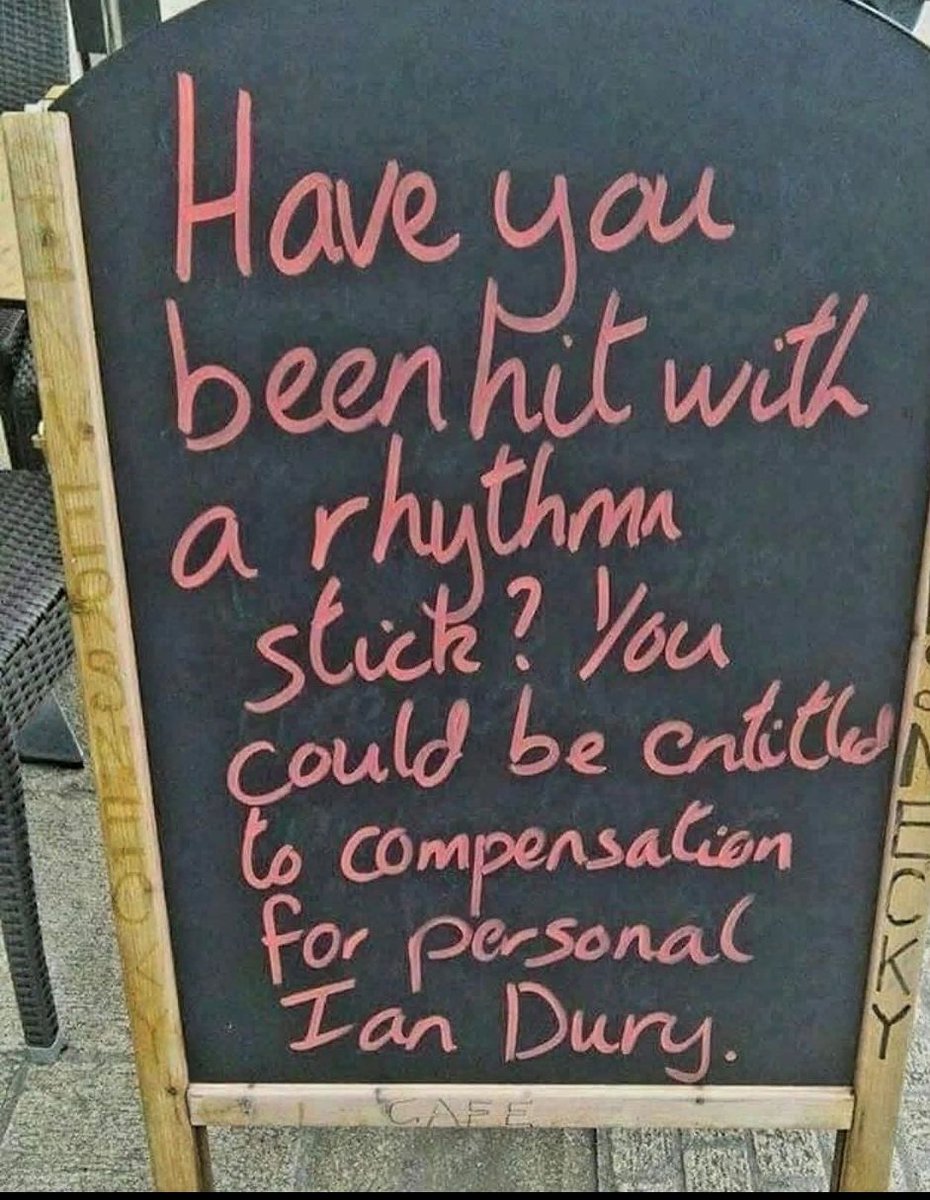 Have you
been hit with
a rhythm
stick? You
could be entitled
to compensation
for personal
Ian Dury.
CAFE